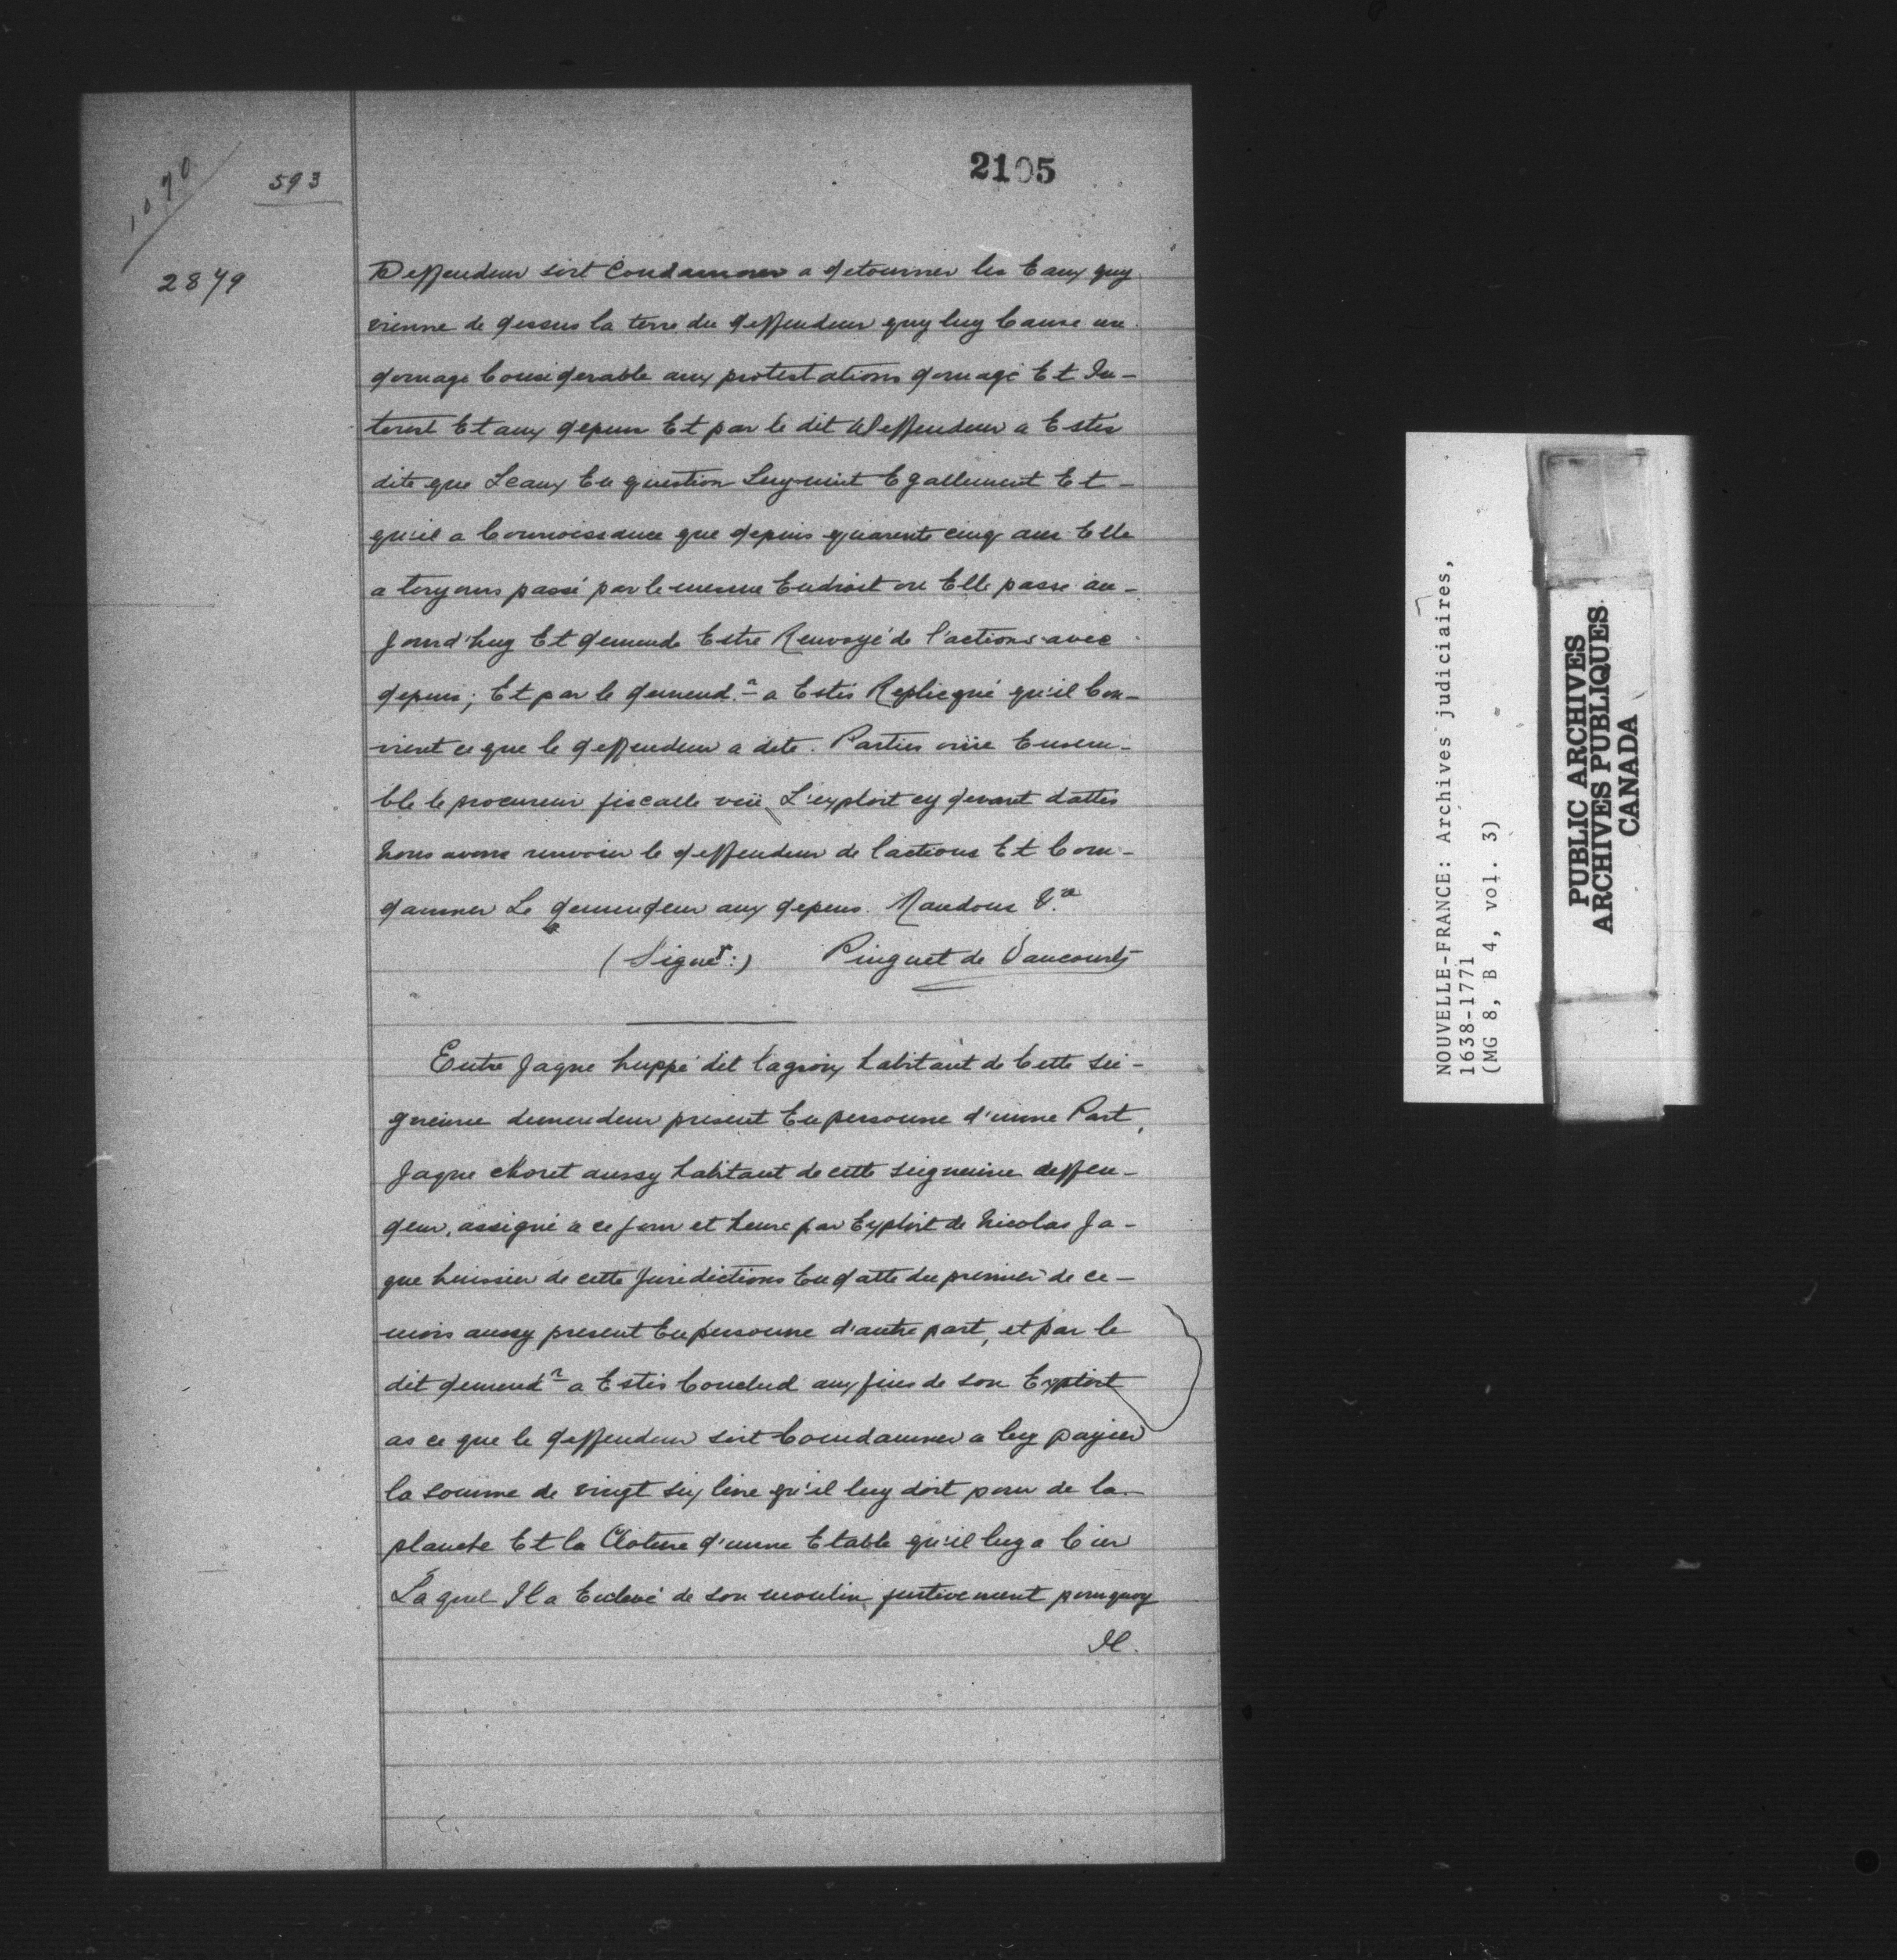 1070
593
2105
2879
Deffendeur soit Condamner a detourner les Eaux quy
vienne de dessus la terre du deffendeur quy luy Cause un
domage Considerable aux protestations domage Et In-
terest Et aux depens Et par le dit Deffendeur a Estés
dite que Leaux En question Luy vint Egallement Et -
qu'il a Connoissance que depuis quarente cinq ans Elle
a toujours passé par le mesme Endroit ou Elle passe au-
jourd'huy Et demende Estre Renvoyé de l'actions avec
depens; Et par le demendr a Estés Replicqué qu'il Con-
vient ce que le deffendeur a dite. Parties ouie Ensem-
ble le procureur fiscalle veü L'exploit cy devant dattes
Nous avons renvoier le deffendeur de lactions Et Com-
damner Le demendeur aux depens. Mandons &ca
(Signé:) Pinguet de Vaucourts
Entre Jaque huppé dit lagroix habitant de Cette sei-
gneurie demendeur present En personne d'unne Part,
Jaque choret aussy habitant de cette seigneurie deffen-
deur, assigné a ce jour et heure par Exploit de Nicolas Ja-
que huissier de cette Juridictions En datte du premier de ce -
mois aussy present En personne d'autre part, et par le
dit demendr a Estés Conclud aux fins de son Exploit
as ce que le deffendeur soit Condamner a luy payier
la somme de vingt six livre qu'il luy doit pour de la -
planche Et la Cloture d'unne Etable qu'il luy a
Laquel Il a Enlevé de son moulin furtivement pourquoy
Il.
NOUVELLE-FRANCE: Archives judiciaires,
1638-1771
(MG 8, B 4, vol. 3)
PUBLIC ARCHIVES
ARCHIVES PUBLIQUES
CANADA